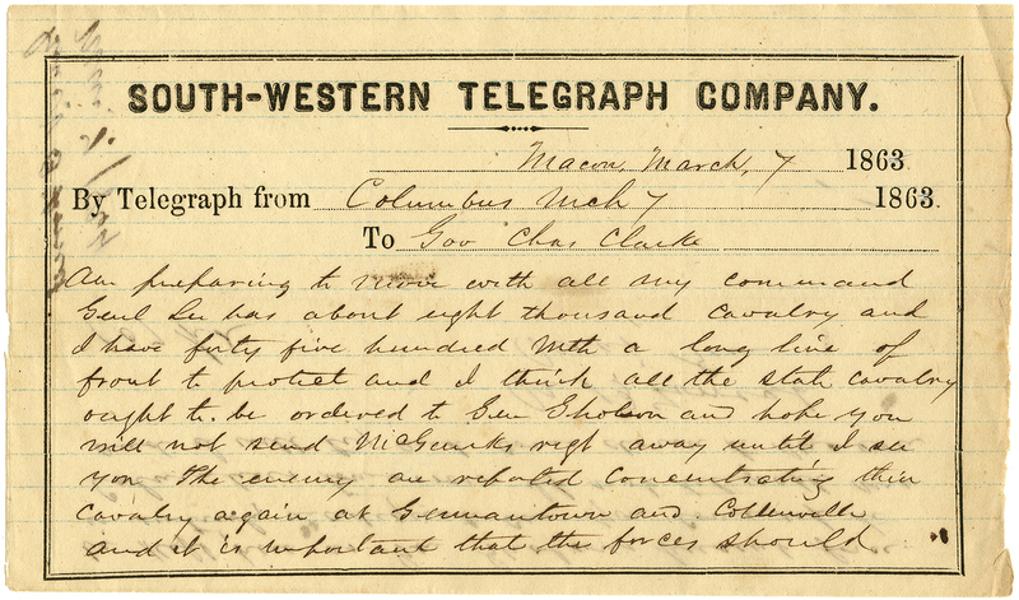 SOUTH-WESTERN TELEGRAPH COMPANY.
Macon, March, 7 1863
By Telegraph from Columbus Mch 7 1863.
To Gov Chas Clarke
Am preparing to move with all my command
Genl Lee has about eight thousand cavalry and
I have forty five hundred With a long line of
front to protect and I think all the state cavalry
ought to be ordered to Gen Gholson and hope you
will not send McGuirks regt away until I see
you The enemy are reported concentrating their
cavalry again at Germantown and Collierville
and it is important that the forces should